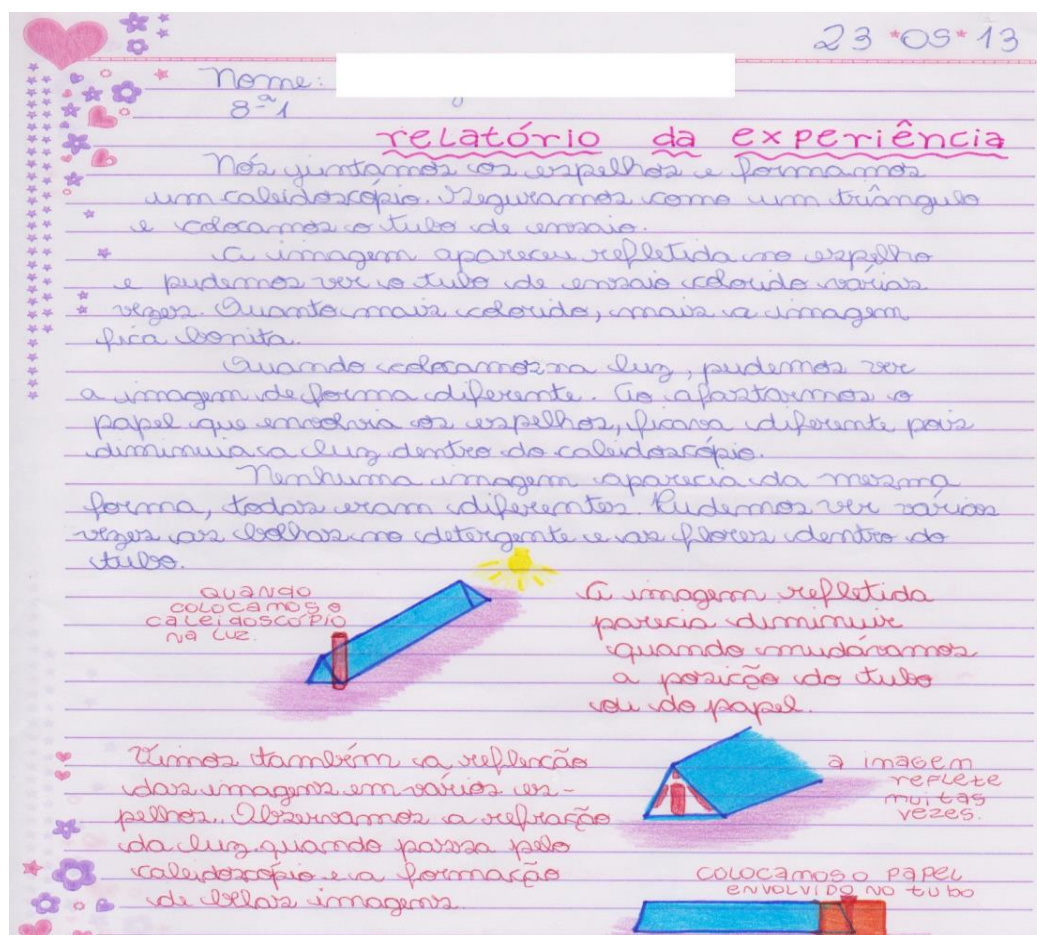 23*05*13
Nome:
8ª1
relatório da experiência
Nós juntamos os espelhos e formamos
um caleidoscópio. Seguramos como um triângulo
e colocamos o tubo de ensaio.
A imagem apareceu refletida no espelho
e pudemos ver o tubo de ensaio colorido várias
vezes. Quanto mais colorido, mais a imagem
fica bonita.
Quando colocamos na luz, pudemos ver
a imagem de forma diferente. Ao afastarmos o
papel que envolvia os espelhos, ficava diferente pois
diminuia a luz dentro do caleidoscópio.
Nenhuma imagem aparecia da mesma
forma, todas eram diferentes. Pudemos ver várias
vezes as bolhas no detergente e as flores dentro do
tubo.
QUANDO
COLOCAMOS O
CALEIDOSCÓPIO
NA LUZ.
A imagem refletida
parecia diminuir
quando mudávamos
a posição do tubo
ou do papel.
Vimos também a reflexão
das imagens em vários es-
pelhos. Observamos a refração
da luz quando passa pelo
caleidoscópio e a formação
de belas imagens.
a imagem
reflete
muitas
vezes.
COLOCAMOS O PAPEL
ENVOLVIDO NO tubo